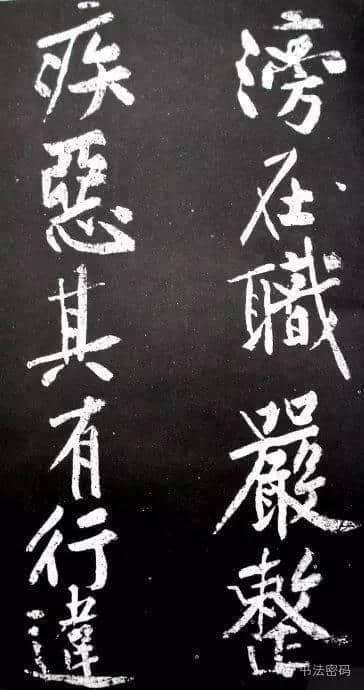 滂在職嚴整
疾惡其有行違
书法密码